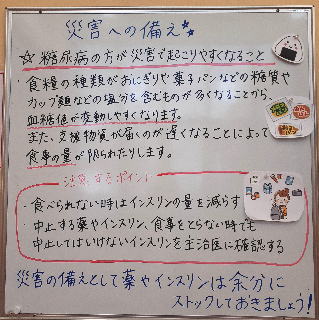 災害への備え
☆ 糖尿病の方が災害で起こりやすくなること
・食糧の種類がおにぎりや菓子パンなどの糖質や
カップ麺などの塩分を含むものが多くなることから、
血糖値が変動しやすくなります。
また、支援物資が届くのが遅くなることによって
食事の量が限られたりします。
注意するポイント
・食べられない時はインスリンの量を減らす
・中止する薬やインスリン、食事をとらない時でも
中止してはいけないインスリンを主治医に確認する
災害の備えとして薬やインスリンは余分に
ストックしておきましょう!